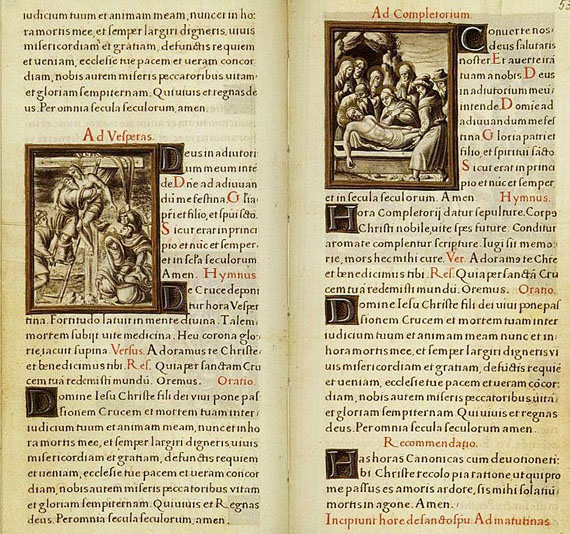 iudicium tuum et animam meam, nunc et in ho
ra mortis mee, et semper largiri digneris, uiuis
misericordiam et gratiam, defunctis requiem
et ueniam, ecclesie tue pacem et ueram concor
diam, nobis autem miseris peccatoribus uitam
et gloriam sempiternam. Qui uiuis et regnas de
us. Per omnia secula seculorum, amen.
Ad Vesperas.
Deus in adiutori
um meum inté
de Dñe ad adiuuan
dú me festina. Gľia
pŕi et filio, et spui scťo.
Sicut erat in princi
pio et núc et semper,
et in secła seculorum.
Amen. Hymnus
De Cruce deponi
tur hora Vesper
tina. Fortitudo latuit in mente diuina. Talem
mortem subijt uite medicina. Heu corona glo
rie iacuit supina. Versus. Adoramus te Christe
et benedicimus tibi. Res. Quia per sanctam Cru
cem tuá redemisti mundú. Oremus. Oratio.
Domine Iesu Christe fili dei uiui pone pas
sionem Crucem et mortem tuam inter
iudicium tuum et animam meam, nunc et in ho
ra mortis mee, et semper largiri digneris uiuis
misericordiam et gratiam, defunctis requiem
et ueniam, ecclesie tue pacem et ueram concor
diam, nobis autem miseris peccatoribus vitam
et gloriam sempiternam. Qui uiuis et Regnas
deus. Per omnia secula seculorum, amen.
53
Ad Completorium.
Conuerte nos
deus salutaris
noster Et auerte irá
tuam a nobis. Deus
in adiutorium meú
intende Domie ad
adiuuandum me fes
tina Gloria patri et
filio, et spiritui sácto.
Sicut erat in princi
pio et núc et semper,
et in secula seculorum. Amen Hymnus.
Hora Completorij datur sepulture. Corpo
Christi nobile, uite spes future. Conditur
aromate complentur scripture. Iugi sit memo
rie, mors hec mihi cure. Ver. Adoramo te Chre
et benedicimus tibi. Res. Quia per sanctá Cru
cem tuá redemisti mundú. Oremus. Oratio.
Domine Iesu Christe fili dei uiui pone pas
sionem Crucem et mortem tuam inter
iudicium tuum et animam meam nunc et in
hora mortis mee, et semper largiri digneris vi
uis misericordiam et gratiam, defúctis requié
et ueniam, ecclesie tue pacem et ueram cócor
diam, nobis autem miseris peccatoribus uitá
et gloriam sempiternam Qui uiuis et regnas
deus. Per omnia secula seculorum amen.
Recommendatio.
Has horas Canonicas cum deuotione ti
bi Christe recolo pia ratione, ut qui pro
me passus es amoris ardore, sis mihi solatiú
mortis in agone. Amen.
Incipiunt hore de sancto spu Ad matutinas